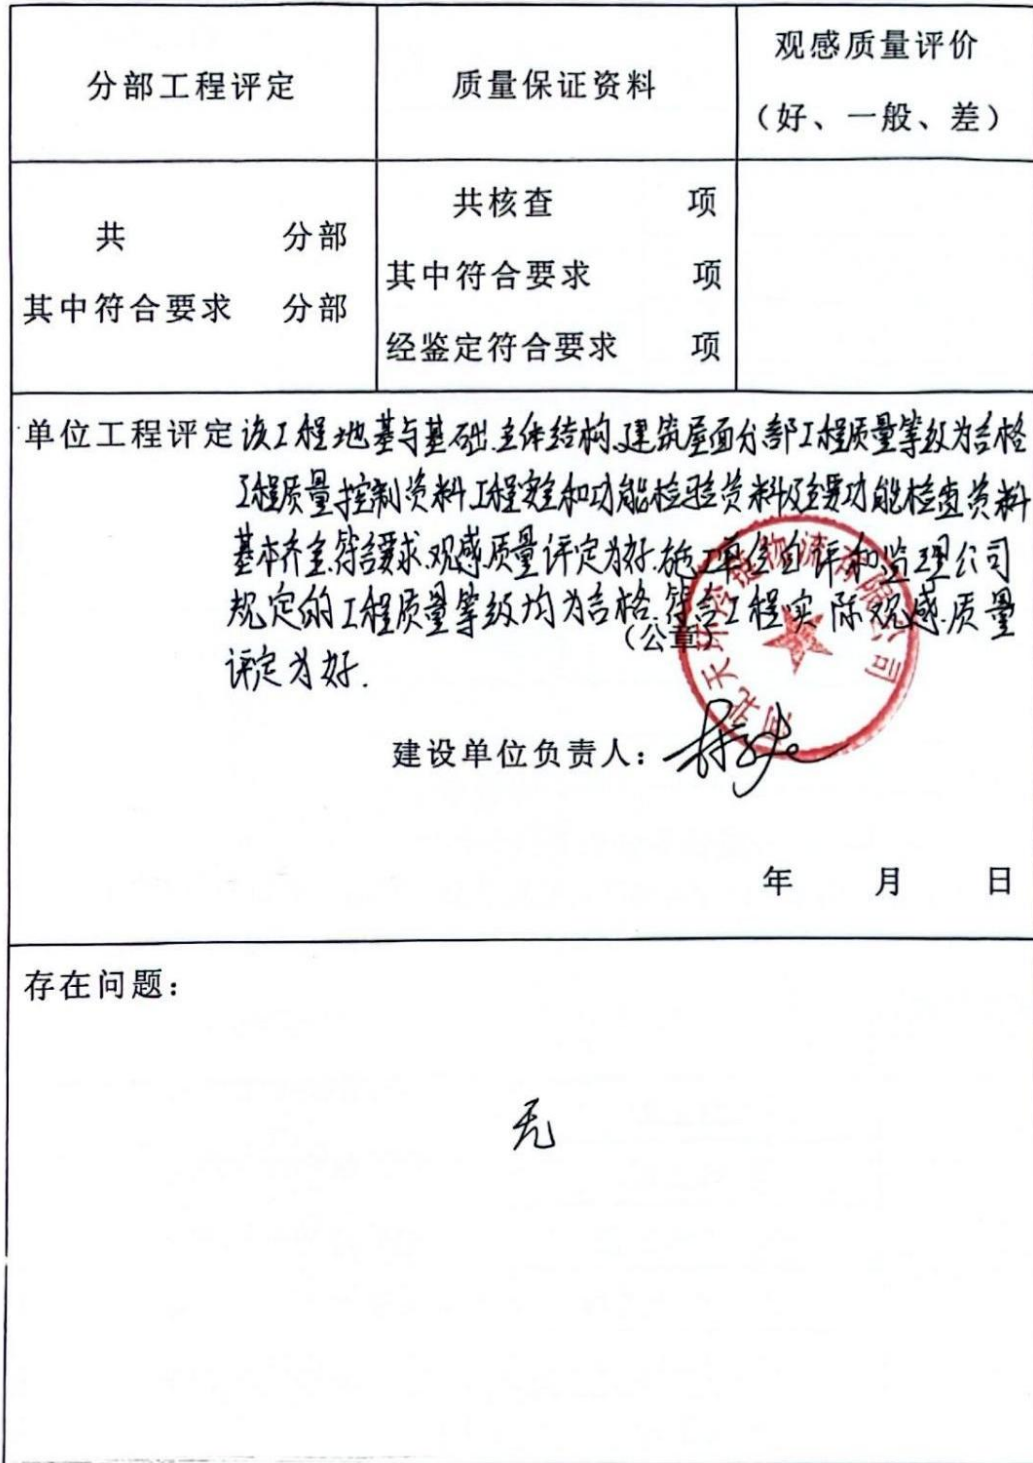 分部工程评定
质量保证资料
观感质量评价
（好、一般、差）
共 分部
其中符合要求 分部
共核查 项
其中符合要求 项
经鉴定符合要求 项
单位工程评定 该工程地基与基础.主体结构.建筑屋面分部工程质量等级为合格
工程质量控制资料.工程安全和功能检验资料及主要功能检查资料
基本齐全.符合要求.观感质量评定为好.施工单位自评和监理公司
规定的工程质量等级均为合格.符合工程实际观感.质量
评定为好.
（公章
天环冷链物流有限公司
建设单位负责人：
年 月 日
存在问题：
无